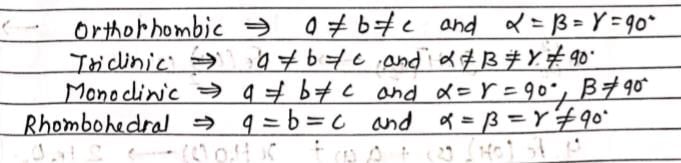 Orthorhombic ⇒ a ≠ b ≠ c and α = β = γ = 90°
Triclinic ⇒ a ≠ b ≠ c and α ≠ β ≠ γ ≠ 90°
Monoclinic ⇒ a ≠ b ≠ c and α = γ = 90°, β ≠ 90°
Rhombohedral ⇒ a = b = c and α = β = γ ≠ 90°